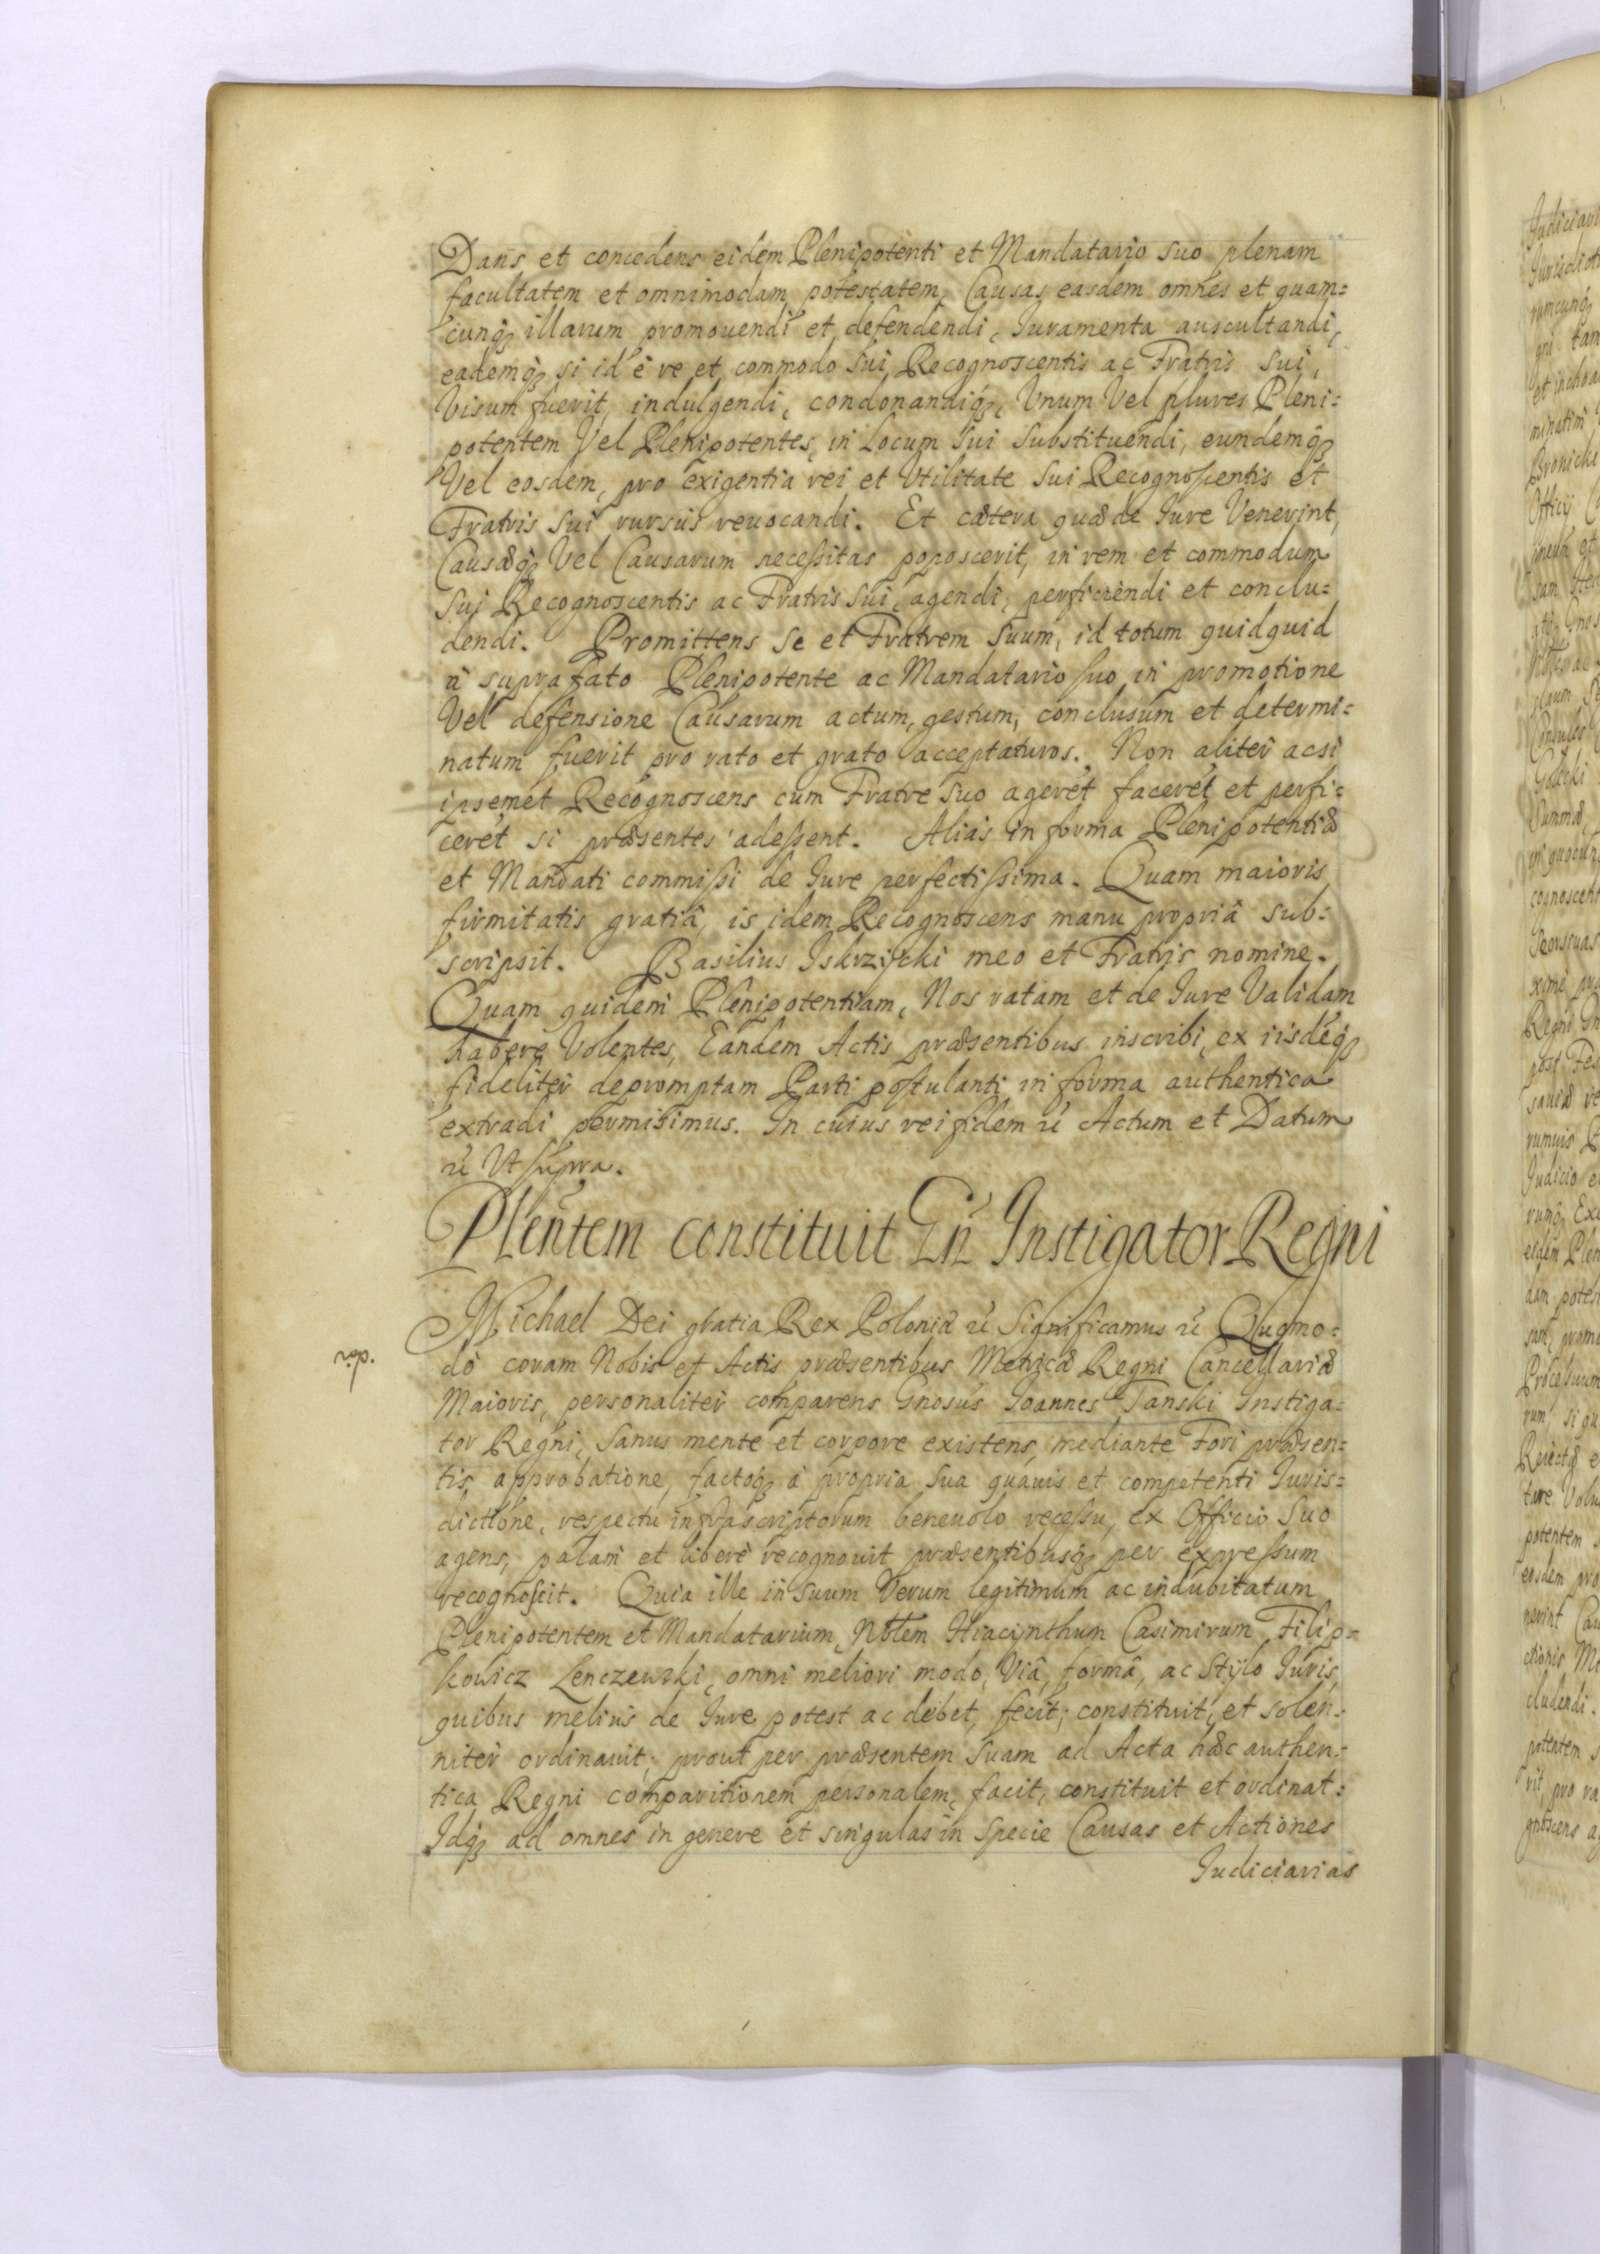 Dans et concedens eidem Plenipotenti et Mandatario suo plenam
facultatem et omnimodam potestatem, Causas easdem omnes et quam=
cunq; illarum promouendi et defendendi, Iuramenta auscultandi,
eademq; si id è re et commodo sui Recognoscentis ac Fratris sui,
Visum fuerit, indulgendi, condonandiq;, Vnum Vel plures Pleni=
potentem Vel Plenipotentes, in Locum sui substituendi, eundemq;
Vel eosdem, pro exigentia rei et Vtilitate sui Recognoscentis et
Fratris sui rursus reuocandi. Et cætera quæ de Iure Venerint,
Causæq; Vel Causarum necessitas poposcerit, in rem et commodum
sui Recognoscentis ac Fratris sui, agendi, perficiendi et conclu=
dendi. Promittens se et Fratrem suum, id totum quidquid
à supra fato Plenipotente ac Mandatario suo in promotione
Vel defensione Causarum actum, gestum, conclusum et determi=
natum fuerit pro rato et grato acceptaturos. Non aliter acsi
ipsemet Recognoscens cum Fratre suo ageret faceret et perfi=
ceret si præsentes adessent. Alias in forma Plenipotentiæ
et Mandati commissi de Iure perfectissima. Quam maioris
firmitatis gratiâ, is idem Recognoscens manu propriâ sub=
scripsit. Basilius Iskrzycki meo et Fratris nomine.
Quam quidem Plenipotentiam, Nos ratam et de Iure Validam
habere Volentes, Eandem Actis præsentibus inscribi, ex iisdeq;
fideliter depromptam Parti postulanti in forma authentica
extradi permisimus. In cuius rei fidem &c Actum et Datum
&c Vt supra.
Plentem constituit Gn Instigator Regni
Michael Dei gratia Rex Poloniæ &c Significamus &c Quomo=
do coram Nobis et Actis præsentibus Metricæ Regni Cancellariæ
Maioris, personaliter comparens Gnosus Ioannes Tanski Instiga=
tor Regni, Sanus mente et corpore existens, mediante Fori præsen=
tis, approbatione, factoq; à propria sua quauis et competenti Iuris=
dictione, respectu infrascriptorum beneuolo recessu, ex Officio suo
agens, palam et liberè recognouit præsentibusq; per expressum
recognoscit. Quia ille in suum Verum legitimum ac indubitatum
Plenipotentem et Mandatarium, Nblem Hiacynthum Casimirum Filip=
kowicz Lenczewski, omni meliori modo, Viâ, formâ, ac Stylo Iuris,
quibus melius de Iure potest ac debet, fecit, constituit, et solen=
niter ordinauit, prout per præsentem suam ad Acta hæc authen=
tica Regni comparitionem personalem, facit, constituit et ordinat:
Idq; ad omnes in genere et singulas in specie Causas et Actiones
Iudiciarias